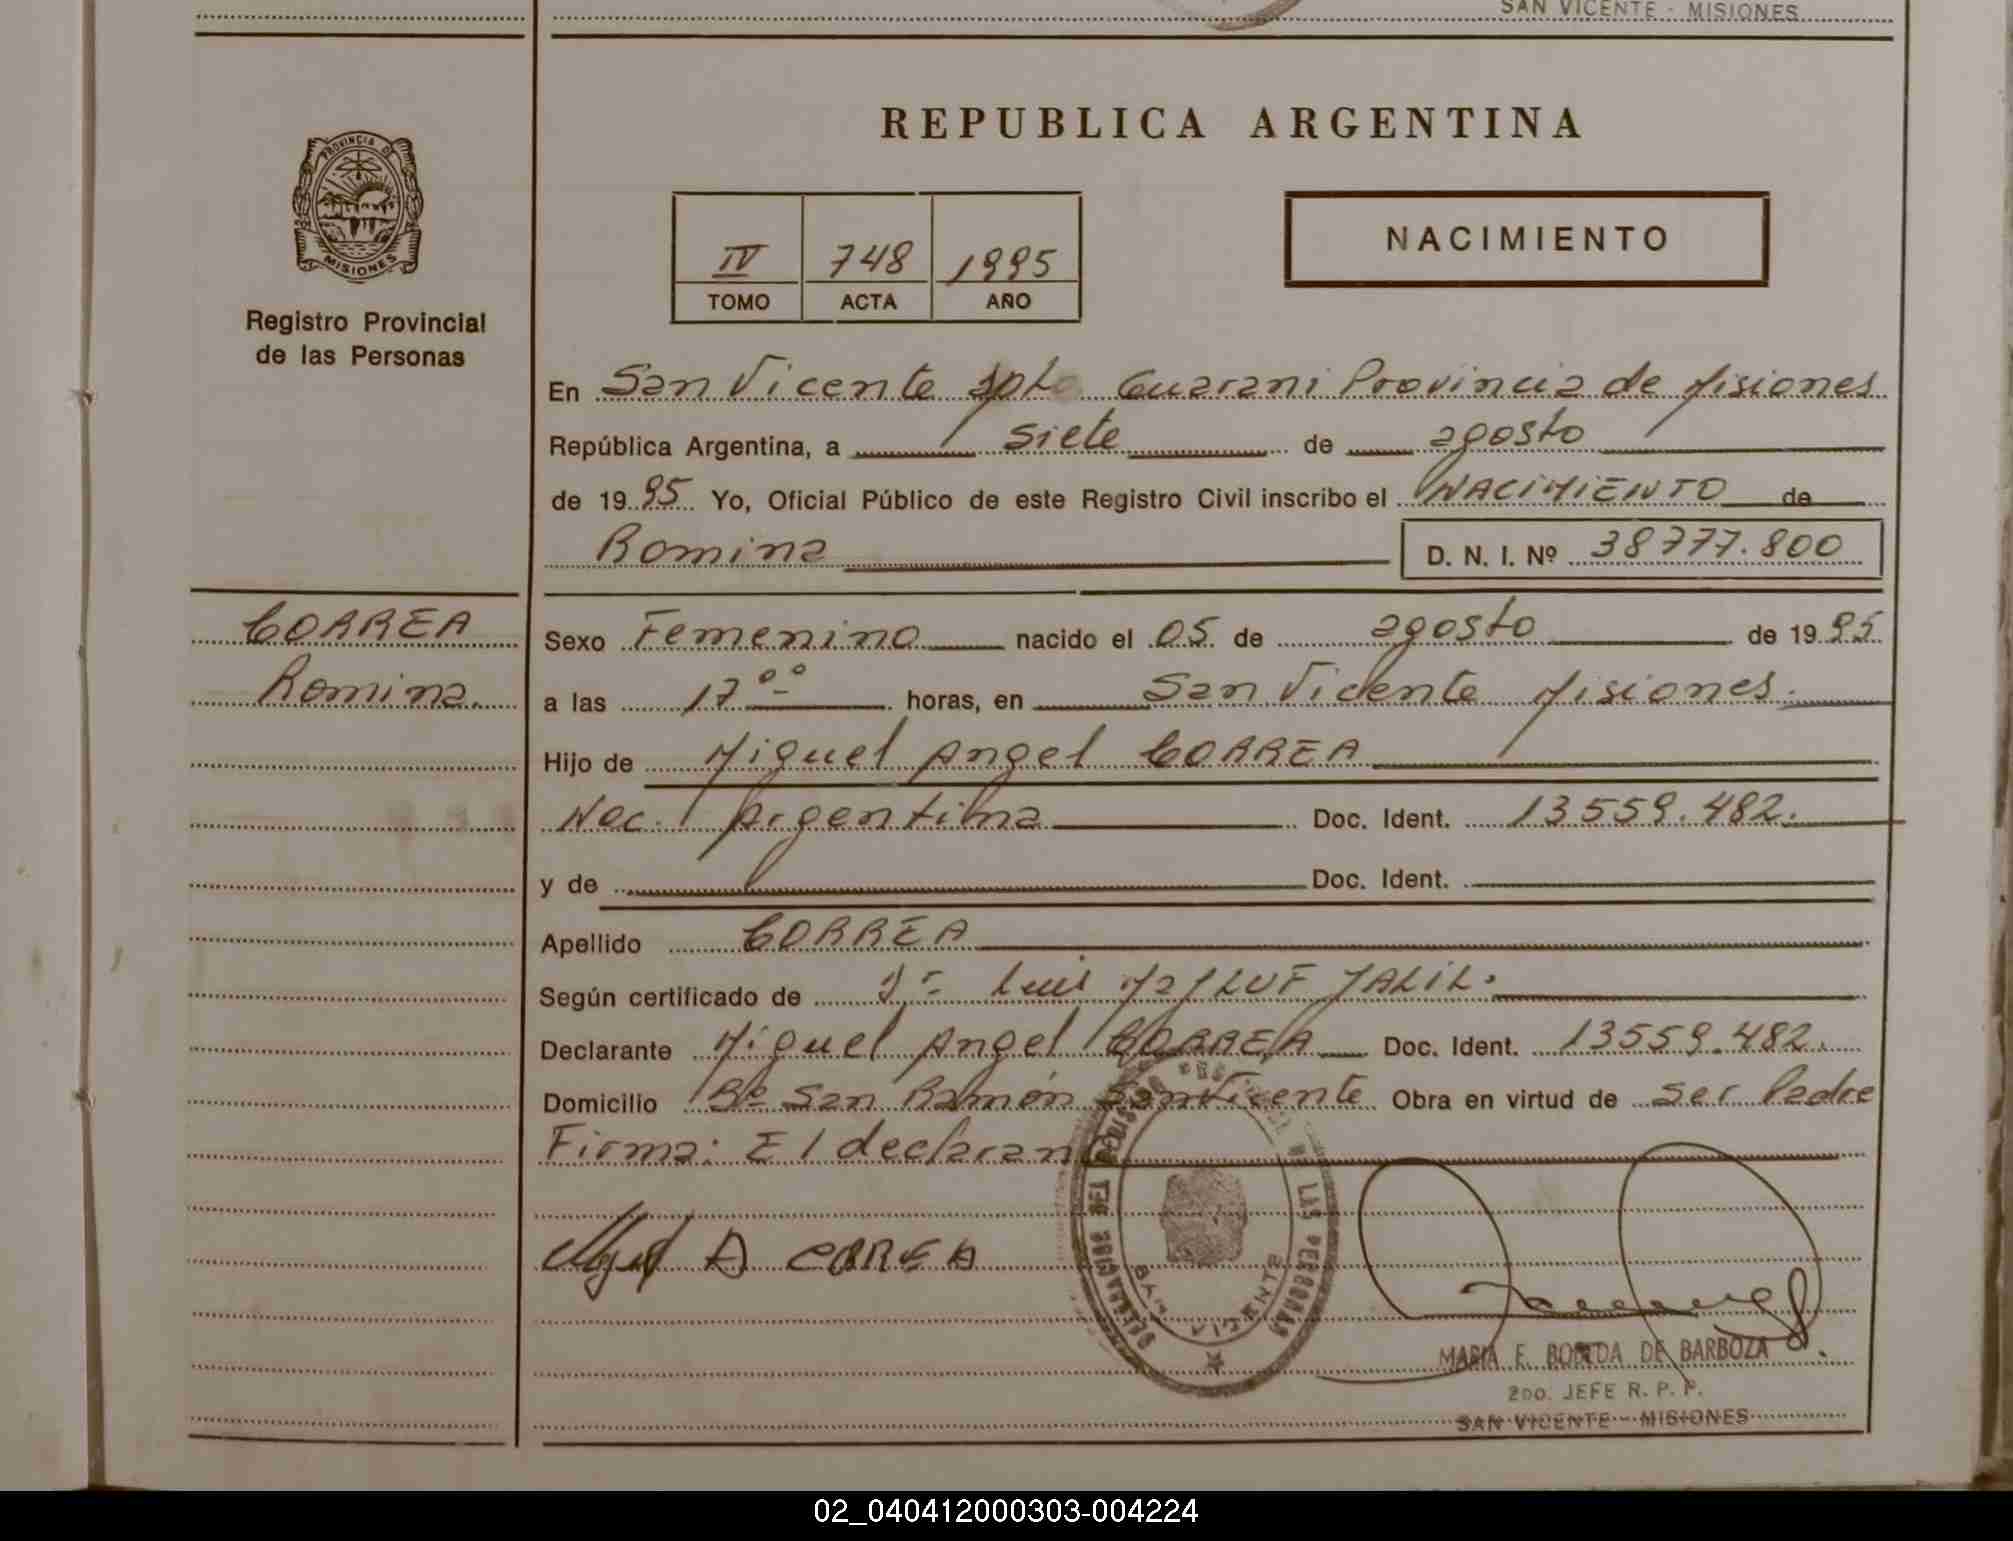 SAN VICENTE - MISIONES
REPUBLICA ARGENTINA
PROVINCIA DE
MISIONES
Registro Provincial
de las Personas
IV 748 1995
TOMO ACTA AÑO
NACIMIENTO
En San Vicente Dpto Guarani Provincia de Misiones
República Argentina, a siete de agosto
de 1995 Yo, Oficial Público de este Registro Civil inscribo el NACIMIENTO de
Romina D. N. I. Nº 38777.800
CORREA
Romina.
Sexo Femenino nacido el 05 de agosto de 1995
a las 17ºº horas, en San Vicente Misiones.
Hijo de Miguel Angel CORREA
Nac. Argentina Doc. Ident. 13559.482.
y de Doc. Ident.
Apellido CORREA
Según certificado de Dr Luis JALIL.
Declarante Miguel Angel CORREA Doc. Ident. 13559.482.
Domicilio Bº San Ramón San Vicente Obra en virtud de ser Padre
Firma: El declarante
Miguel A CORREA
DE LAS PERSONAS
SAN VICENTE
MARIA E. DE BARBOZA
2DO. JEFE R. P. P.
SAN VICENTE - MISIONES
02_040412000303-004224